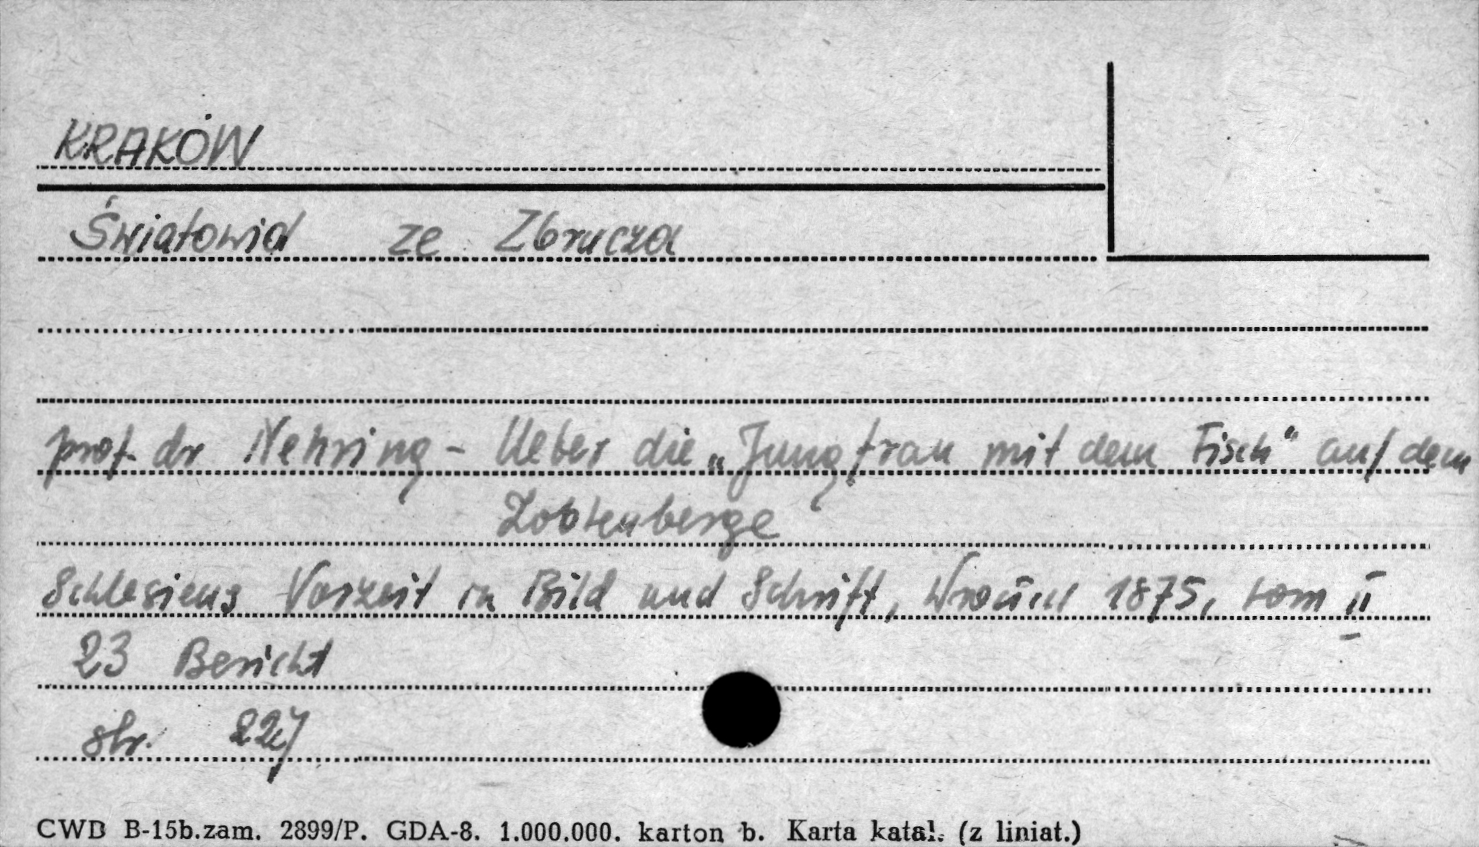 KRAKÓW
Światowid ze Zbrucza
prof. dr Nehring - Ueber die „Jungfrau mit dem Fisch" auf dem
Zobtenberge
Schlesiens Vorzeit in Bild und Schrift, 1875, tom II
23 Bericht
str.
CWD B-15b.zam. 2899/P. GDA-8. 1.000.000. karton b. Karta katal. (z liniat.)